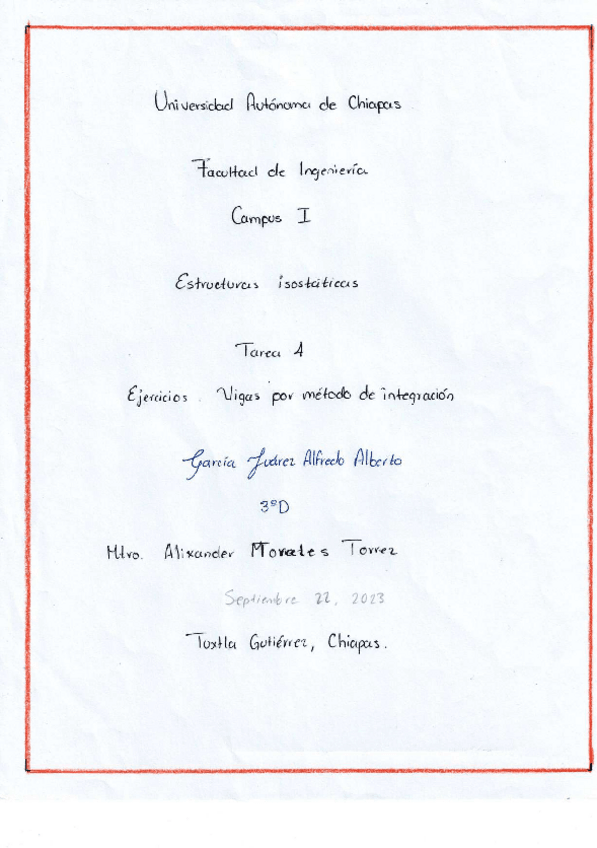 Universidad Autónoma de Chiapas
Facultad de Ingeniería
Campus I
Estructuras isostáticas
Tarea 4
Ejercicios. Vigas por método de integración
García Juárez Alfredo Alberto
3°D
Mtro. Alixander Morales Torrez
Septiembre 22, 2023
Tuxtla Gutiérrez, Chiapas.